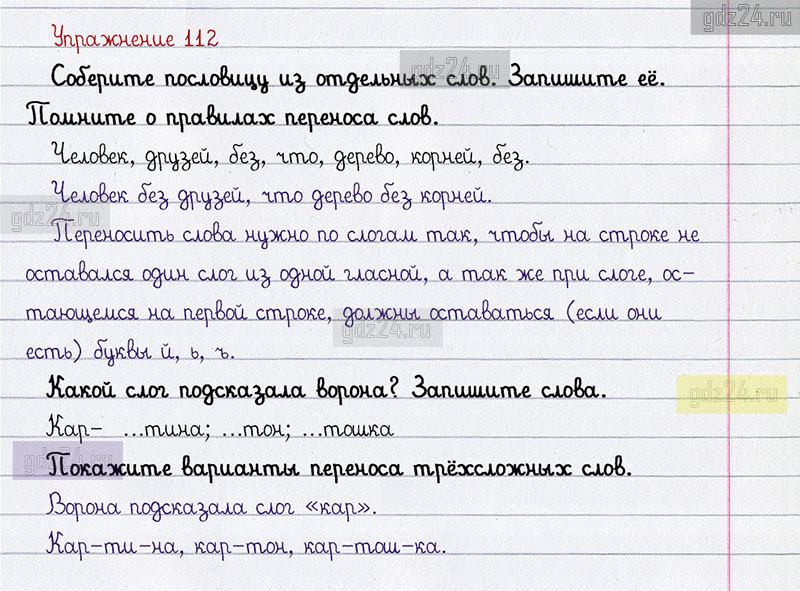 gdz24.ru
Упражнение 112
gdz24.ru
Соберите пословицу из отдельных слов. Запишите её.
Помните о правилах переноса слов.
Человек, друзей, без, что, дерево, корней, без.
Человек без друзей, что дерево без корней.
gdz24.ru
Переносить слова нужно по слогам так, чтобы на строке не
оставался один слог из одной гласной, а так же при слоге, ос-
тающемся на первой строке, должны оставаться (если они
gdz24.ru
есть) буквы й, ь, ъ.
Какой слог подсказала ворона? Запишите слова.
gdz24.ru
Кар- ...тина; ...тон; ...тошка
gdz24.ru
Покажите варианты переноса трёхсложных слов.
Ворона подсказала слог «кар».
Кар-ти-на, кар-тон, кар-тош-ка.